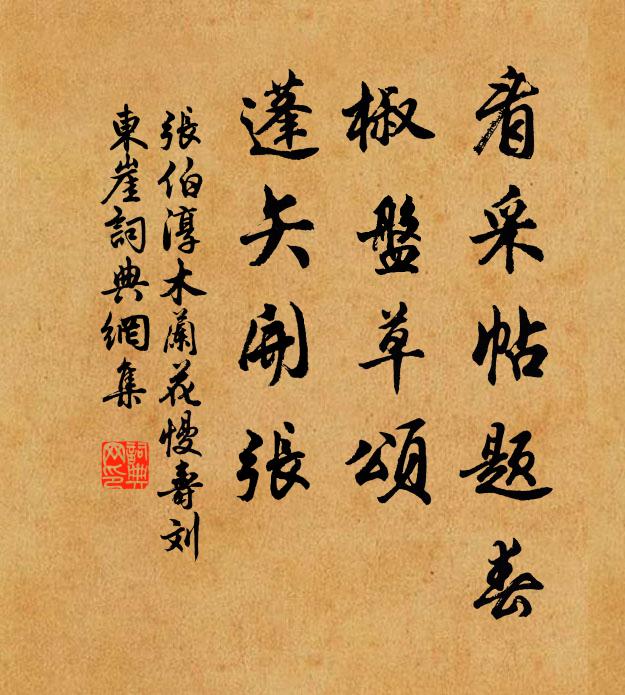 看采帖題春
椒盤草頌
蓬矢開張
張伯淳木蘭花慢壽刘
東崖詞典網集
詞典
网印